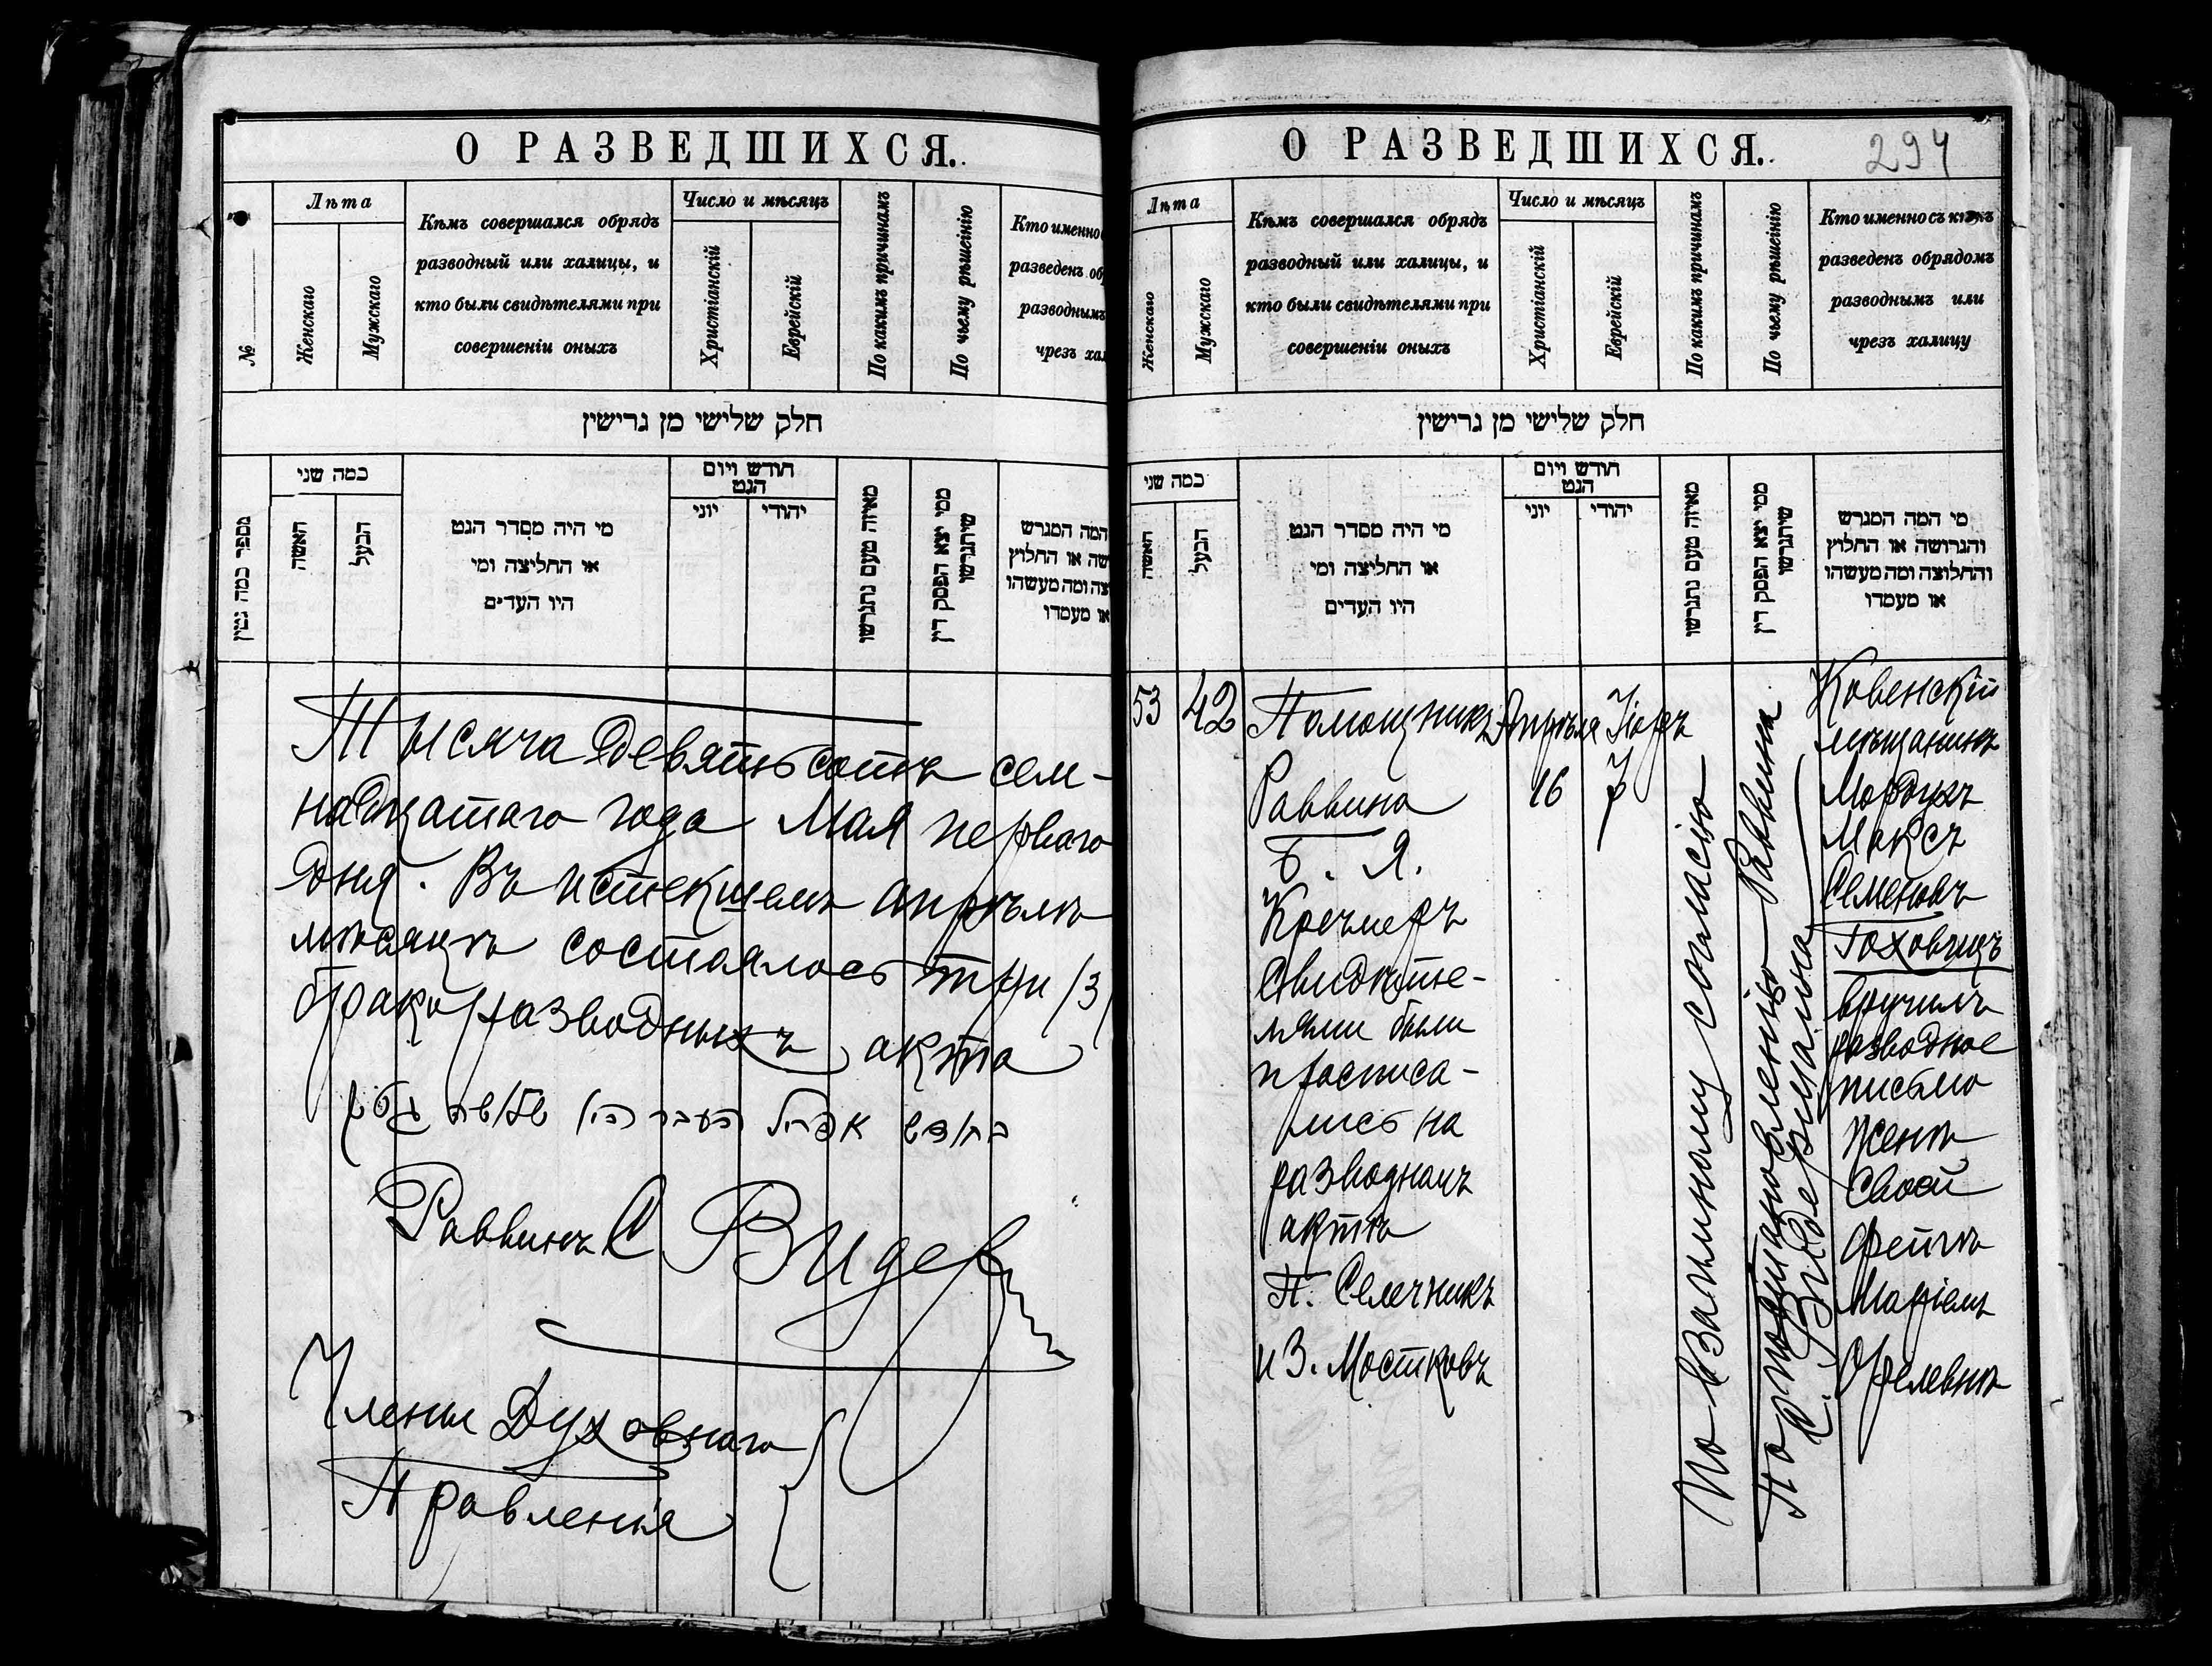 О РАЗВЕДШИХСЯ.
№
Лѣта
Женскаго
Мужскаго
Кѣмъ совершался обрядъ
разводный или халицы, и
кто были свидѣтелями при
совершеніи оныхъ
Число и мѣсяцъ
Христіанскій
Еврейскій
По какимъ причинамъ
По чьему рѣшенію
Кто именно
разведенъ об
разводнымъ
чрезъ хал
חלק שלישי מן גרישין
מספר כמה גטין
כמה שני
האשה
הבעל
מי היה מסדר הגט
או החליצה ומי
היו העדים
חודש ויום
הגט
יוני
יהודי
מאיזה טעם נתגרשו
ממי יצא הפסק דין
שיתגרשו
המה המגרש
שה או החלוץ
צה ומה מעשהו
או מעמדו
Тысяча девятьсотъ сем-
надцатаго года Мая перваго
дня. Въ истекшемъ апрѣлѣ
мѣсяцѣ состоялось три /3/
бракоразводныхъ акта
בחודש אפריל העבר היו שלושה גטין
Раввинъ С Видер
Члены Духовнаго
Правленія
О РАЗВЕДШИХСЯ.
294
Лѣта
Женскаго
Мужскаго
Кѣмъ совершался обрядъ
разводный или халицы, и
кто были свидѣтелями при
совершеніи оныхъ
Число и мѣсяцъ
Христіанскій
Еврейскій
По какимъ причинамъ
По чьему рѣшенію
Кто именно съ кѣмъ
разведенъ обрядомъ
разводнымъ или
чрезъ халицу
חלק שלישי מן גרישין
כמה שני
האשה
הבעל
מי היה מסדר הגט
או החליצה ומי
היו העדים
חודש ויום
הגט
יוני
יהודי
מאיזה טעם נתגרשו
ממי יצא הפסק דין
שיתגרשו
מי המה המגרש
והגרושה או החלוץ
והחלוצה ומה מעשהו
או מעמדו
53
42
Помощникъ
Раввина
Б. Я.
Кречмеръ
Свидѣте-
лями были
росписа-
лись на
разводномъ
актѣ
П. Селечникъ
и З. Мостковъ
Апрѣля
16
Іоръ
7
По взаимному согласію
По постановленію Раввина
С. Видермана
Ковенскій
мѣщанинъ
Мордухъ
Максъ
Семеновъ
Гоховичъ
вручилъ
разводное
письмо
женѣ
своей
Фейгѣ
Маріемъ
Орелевнѣ